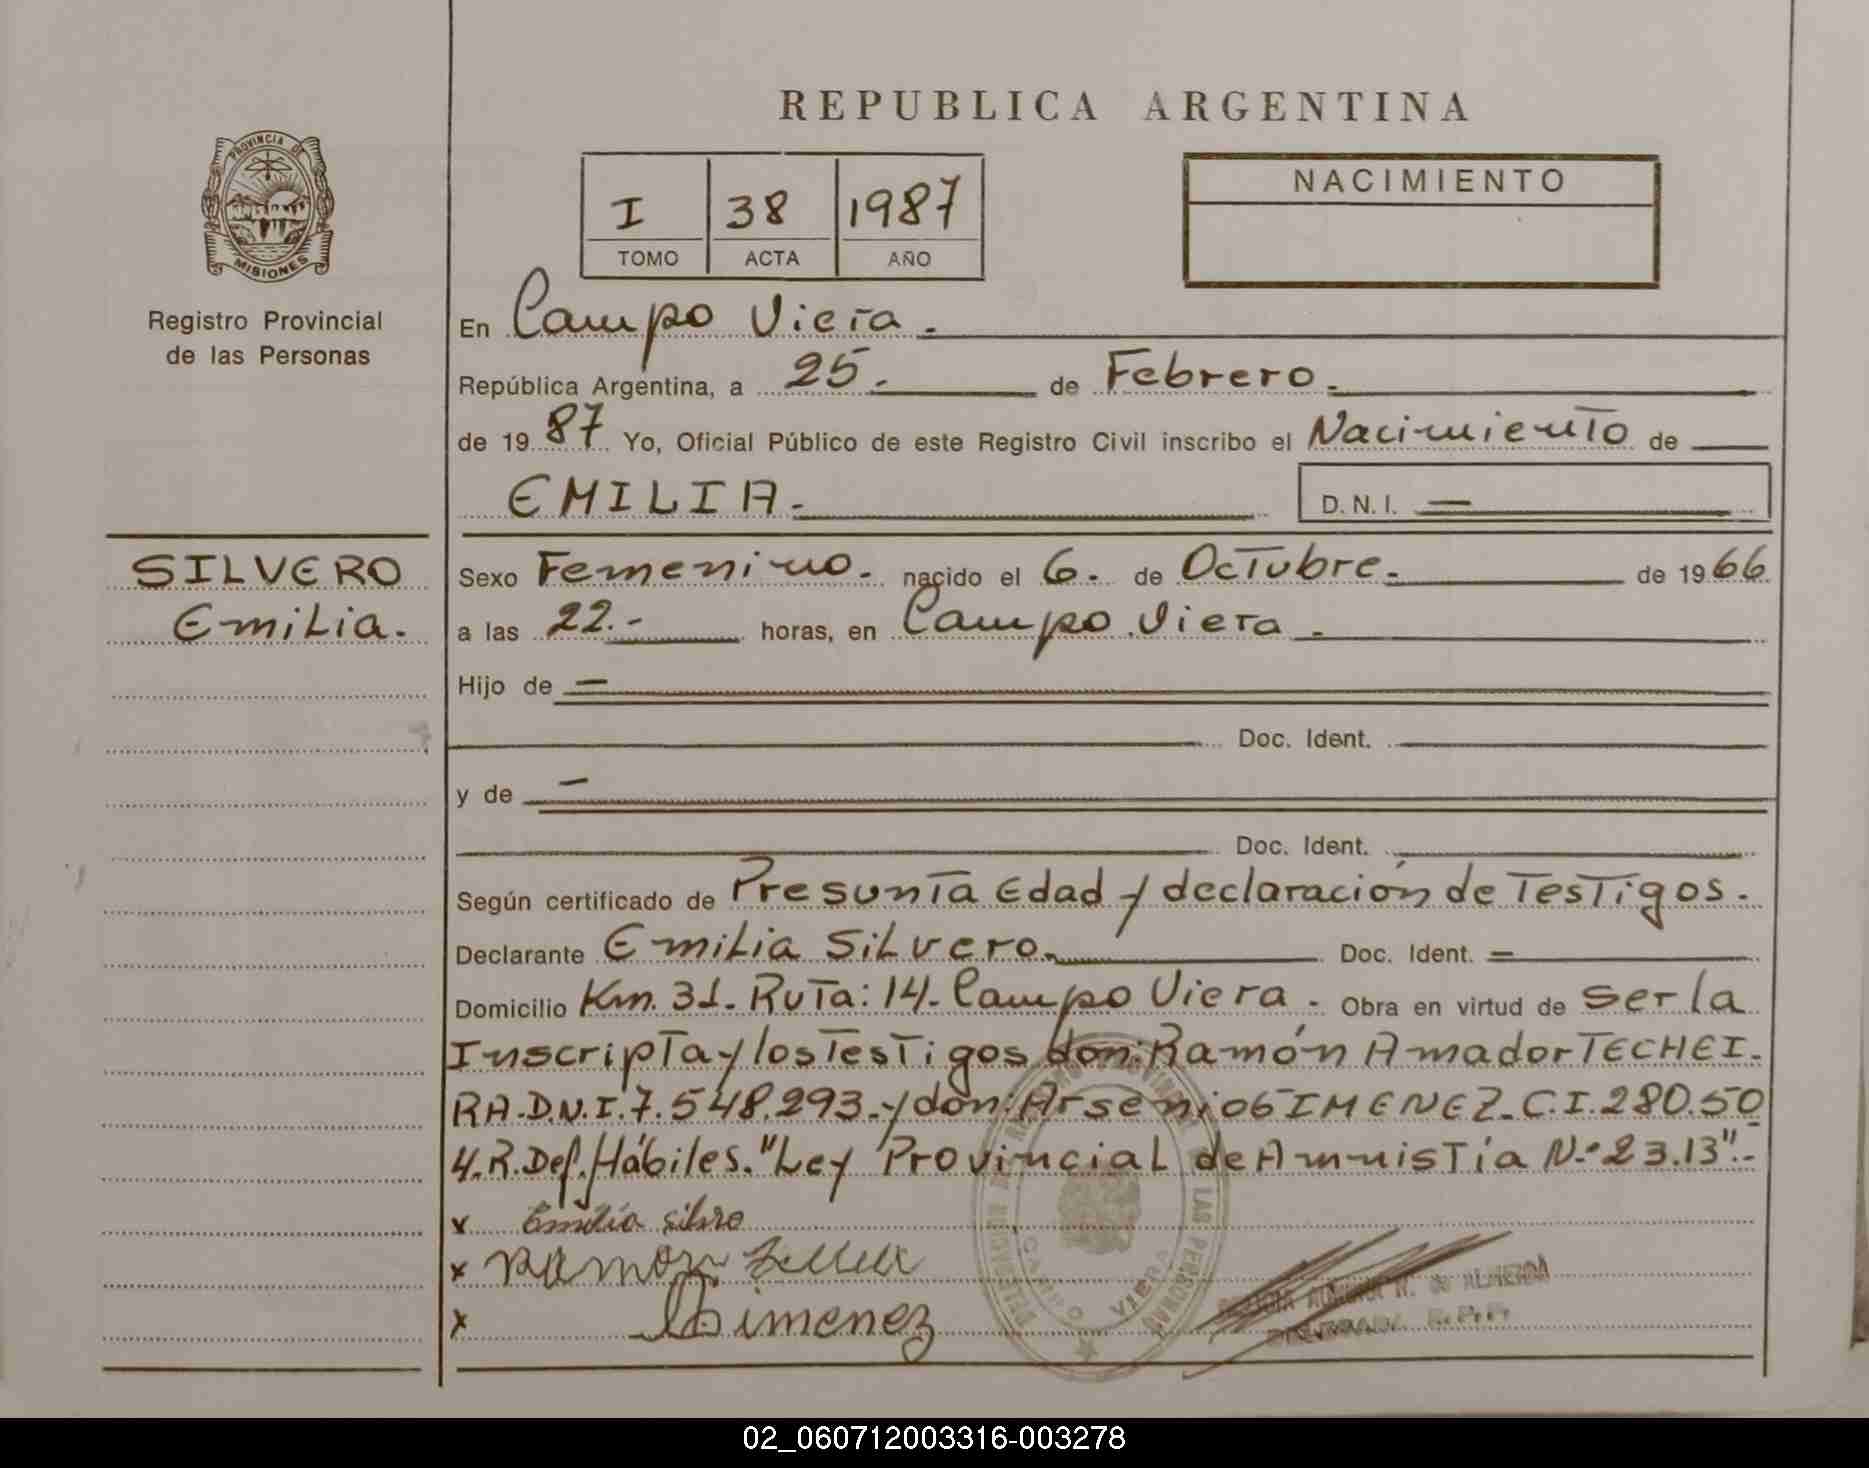 REPUBLICA ARGENTINA
PROVINCIA DE
MISIONES
Registro Provincial
de las Personas
I 38 1987
TOMO ACTA AÑO
NACIMIENTO
En Campo Viera.
República Argentina, a 25. de Febrero.
de 19 87 Yo, Oficial Público de este Registro Civil inscribo el Nacimiento de
EMILIA. D.N.I. —
SILVERO
Emilia.
Sexo Femenino. nacido el 6. de Octubre. de 19 66
a las 22.- horas, en Campo Viera.
Hijo de —
Doc. Ident.
y de —
Doc. Ident.
Según certificado de Presunta Edad y declaración de Testigos.
Declarante Emilia Silvero. Doc. Ident. =
Domicilio Km. 31. Ruta: 14. Campo Viera. Obra en virtud de ser la
Inscripta y los Testigos don: Ramón Amador TECHEI.
RA. D.N.I. 7.548.293. y don: Arsenio GIMENEZ. C.I. 280.50
4. R. Def. Hábiles. "Ley Provincial de Amnistía N.º 23.13".-
x Emilia silro
x Ramon
x Gimenez
DELEGACION LAS PERSONAS
CAMPO VIERA
DE ALMEIDA
R.P.P.
02_060712003316-003278